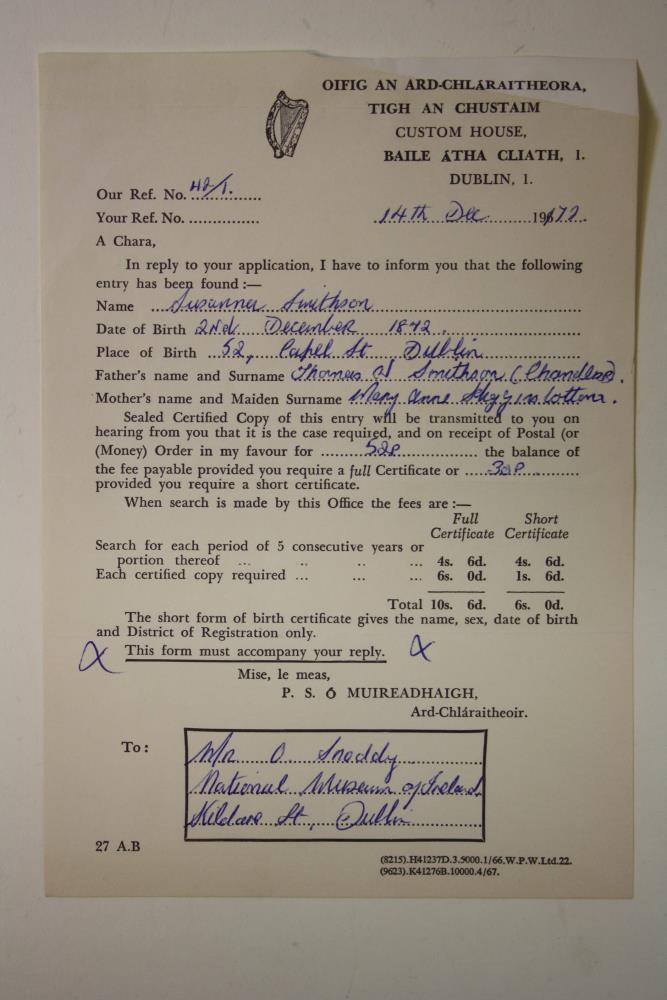 OIFIG AN ARD-CHLÁRAITHEORA,
TIGH AN CHUSTAIM
CUSTOM HOUSE,
BAILE ÁTHA CLIATH, 1.
DUBLIN, 1.
Our Ref. No. 42/1.
Your Ref. No. ...............
14th Dec 1972.
A Chara,
In reply to your application, I have to inform you that the following
entry has been found :—
Name Susanna Smithson
Date of Birth 2nd December 1872.
Place of Birth 52, Capel St Dublin
Father's name and Surname Thomas Smithson (Chandler).
Mother's name and Maiden Surname Mary Anne
Sealed Certified Copy of this entry will be transmitted to you on
hearing from you that it is the case required, and on receipt of Postal (or
(Money) Order in my favour for 52p the balance of
the fee payable provided you require a full Certificate or 30p
provided you require a short certificate.
When search is made by this Office the fees are :—
Full Short
Certificate Certificate
Search for each period of 5 consecutive years or
portion thereof ... .. .. ... 4s. 6d. 4s. 6d.
Each certified copy required ... ... ... 6s. 0d. 1s. 6d.
Total 10s. 6d. 6s. 0d.
The short form of birth certificate gives the name, sex, date of birth
and District of Registration only.
X This form must accompany your reply. X
Mise, le meas,
P. S. Ó MUIREADHAIGH,
Ard-Chláraitheoir.
To :
Mr O Snoddy
National Museum of Ireland
Kildare St, Dublin
27 A.B
(8215).H41237D.3.5000.1/66.W.P.W.Ltd.22.
(9623).K41276B.10000.4/67.